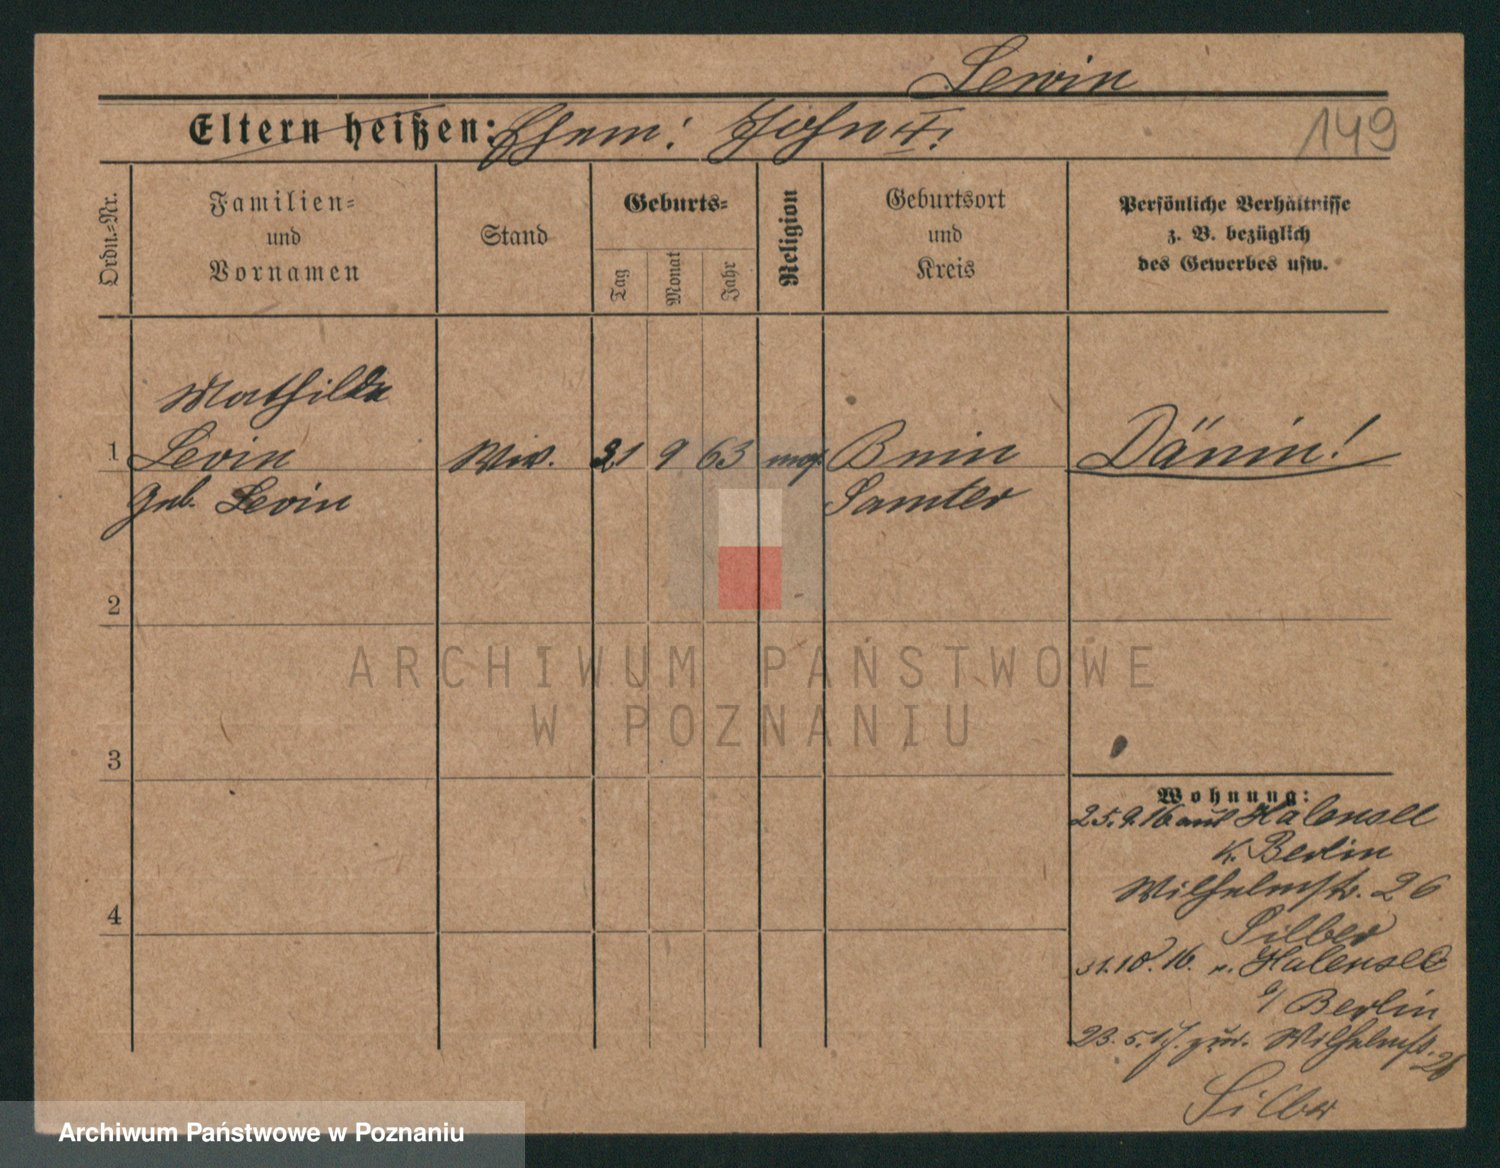 Lewin
Eltern heißen: Ehem: John †.
149
Ordn.-Nr.
Familien- und Vornamen
Stand
Geburts-
Tag
Monat
Jahr
Religion
Geburtsort und Kreis
Persönliche Verhältnisse
z. B. bezüglich
des Gewerbes usw.
Mathilde
1 Levin Wiw. 21 9 63 mos. Bnin Dänin!
geb. Levin Samter
2
3
4
Wohnung:
25.9.16 aus Halensee
b. Berlin
Wilhelmstr. 26
Silber
31.10.16. n. Halensee
b/ Berlin
23.5.17. zur. Wilhelmstr. 26
Silber
ARCHIWUM PAŃSTWOWE
W POZNANIU
Archiwum Państwowe w Poznaniu